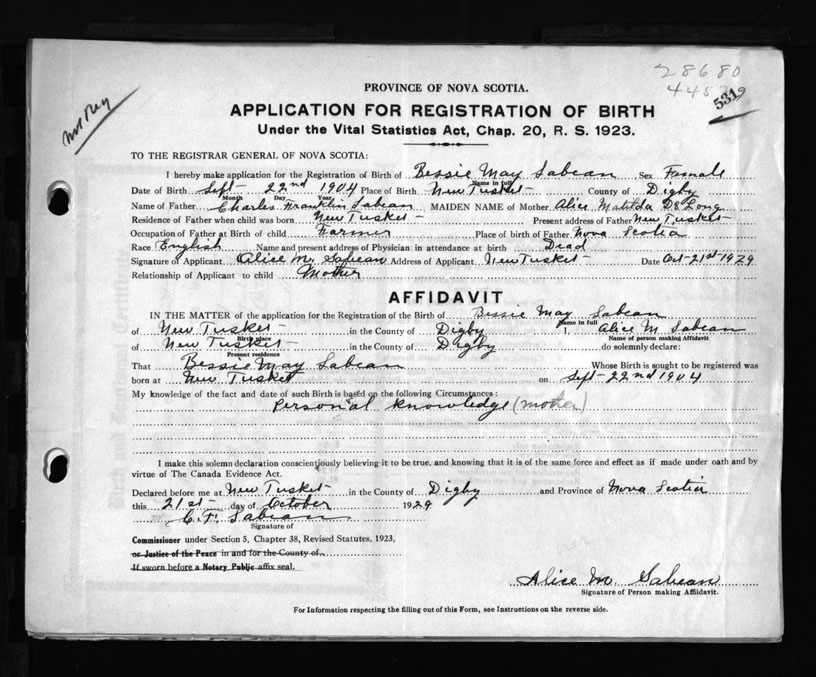 28680
4452
5319
PROVINCE OF NOVA SCOTIA.
APPLICATION FOR REGISTRATION OF BIRTH
Under the Vital Statistics Act, Chap. 20, R. S. 1923.
TO THE REGISTRAR GENERAL OF NOVA SCOTIA:
I hereby make application for the Registration of Birth of Bessie May Sabean Sex Female
Name in full
Date of Birth Sept 22nd 1904 Place of Birth New Tusket County of Digby
Month Day Year
Name of Father Charles Franklin Sabean MAIDEN NAME of Mother Alice Matilda DeLong
Residence of Father when child was born New Tusket Present address of Father New Tusket
Occupation of Father at Birth of child Farmer Place of birth of Father Nova Scotia
Race English Name and present address of Physician in attendance at birth Dead
Signature of Applicant Alice M. Sabean Address of Applicant New Tusket Date Oct 21st 1929
Relationship of Applicant to child Mother
AFFIDAVIT
IN THE MATTER of the application for the Registration of the Birth of Bessie May Sabean
Name in full
of New Tusket in the County of Digby I, Alice M Sabean
Birth place Name of person making Affidavit
of New Tusket in the County of Digby do solemnly declare:
Present residence
That Bessie May Sabean Whose Birth is sought to be registered was
born at New Tusket on Sept 22nd 1904
My knowledge of the fact and date of such Birth is based on the following Circumstances:
Personal knowledge (mother)
I make this solemn declaration conscientiously believing it to be true, and knowing that it is of the same force and effect as if made under oath and by
virtue of The Canada Evidence Act.
Declared before me at New Tusket in the County of Digby and Province of Nova Scotia
this 21st day of October 1929
C. F. Sabean
Signature of
Commissioner under Section 5, Chapter 38, Revised Statutes, 1923,
or Justice of the Peace in and for the County of
If sworn before a Notary Public affix seal.
Alice M. Sabean
Signature of Person making Affidavit.
For Information respecting the filling out of this Form, see Instructions on the reverse side.